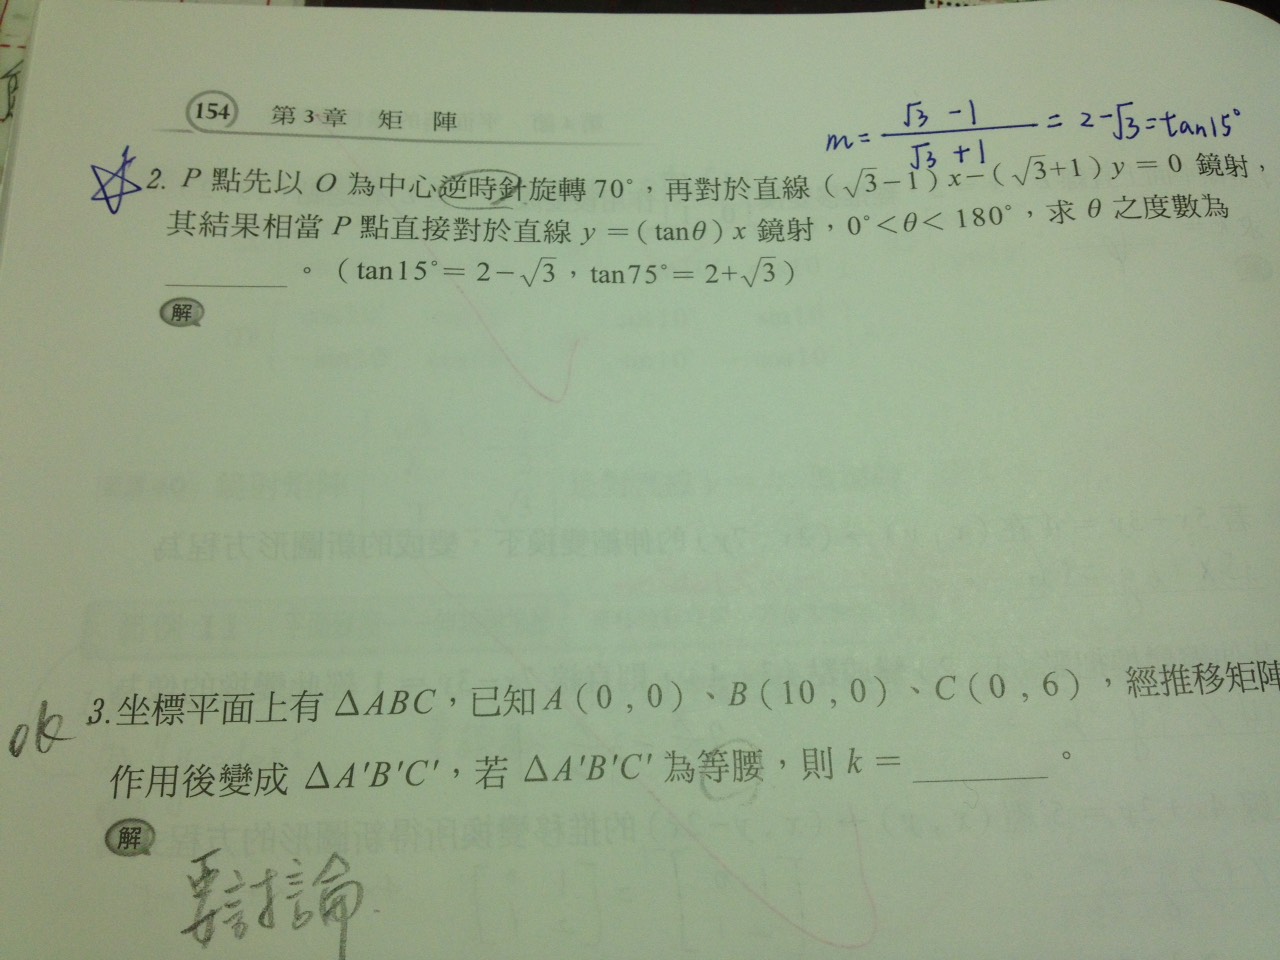 154 第3章 矩 陣
m = (√3 -1)/(√3 +1) = 2-√3 = tan15°
2. P 點先以 O 為中心逆時針旋轉 70°,再對於直線 (√3-1) x-(√3+1) y = 0 鏡射,
其結果相當 P 點直接對於直線 y =(tanθ) x 鏡射,0°<θ< 180°,求 θ 之度數為
______。(tan15°= 2-√3,tan75°= 2+√3)
解
ok 3.坐標平面上有 ΔABC,已知 A (0 , 0)、B (10 , 0)、C (0 , 6),經推移矩陣
作用後變成 ΔA'B'C',若 ΔA'B'C' 為等腰,則 k = ______。
解
要討論.